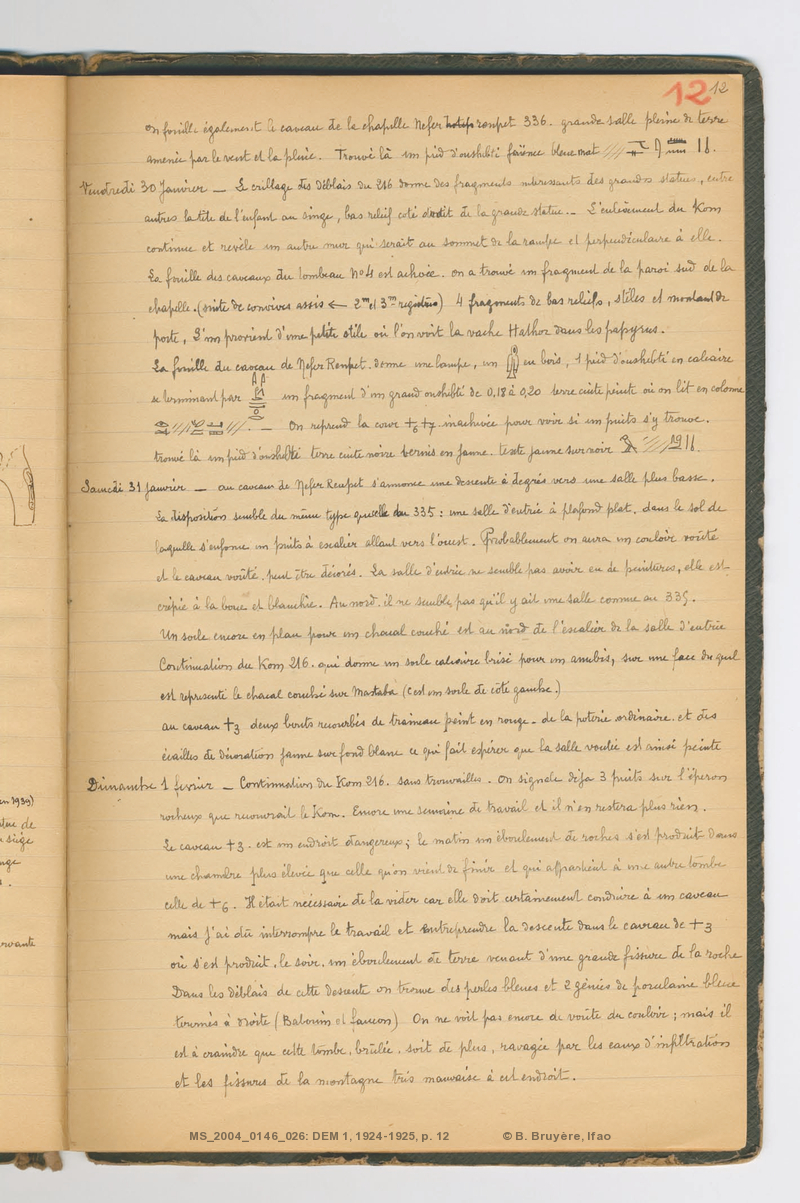 12 12
on fouille également le caveau de la chapelle Nefer hotep ronpet 336. grande salle pleine de terre
amenée par le vent et la pluie. Trouvé là un pied d'oushebti faïence bleue mat
Vendredi 30 Janvier — Le crillage des déblais du 216 donne des fragments intéressants des grandes statues, entre
autres la tête de l'enfant au singe, bas relief coté droit de la grande statue. — L'enlèvement du Kom
continue et revèle un autre mur qui serait au sommet de la rampe et perpendiculaire à elle.
La fouille des caveaux du tombeau No 4 est achevée. on a trouvé un fragment de la paroi sud de la
chapelle. (suite de convives assis ← 2me et 3me registres) 4 fragments de bas reliefs, stèles et montant de
porte, L'un provient d'une petite stèle où l'on voit la vache Hathor dans les papyrus.
La fouille du caveau de Nefer Renpet. donne une lampe, un en bois, 1 pied d'oushebti en calcaire
se terminant par un fragment d'un grand oushebti de 0,18 à 0,20 terre cuite peinte où on lit en colonne
— On reprend la cour +6 +7 inachevée pour voir si un puits s'y trouve.
trouvé là un pied d'oushebti terre cuite noire vernis en jaune. texte jaune sur noir
Samedi 31 Janvier — au caveau de Nefer Renpet s'annonce une descente à degrés vers une salle plus basse.
La disposition semble du même type que celle du 335 : une salle d'entrée à plafond plat, dans le sol de
laquelle s'enfonce un puits à escalier allant vers l'ouest. Probablement on aura un couloir voûté
et le caveau voûté, peut être décorés. La salle d'entrée ne semble pas avoir eu de peintures, elle est
crépie à la boue et blanchie. Au nord. il ne semble pas qu'il y ait une salle comme au 335.
Un socle encore en place pour un chacal couché est au nord de l'escalier de la salle d'entrée
Continuation du Kom 216. qui donne un socle calcaire brisé pour un anubis, sur une face duquel
est représenté le chacal couché sur Mastaba (c'est un socle de côté gauche.)
au caveau +3 deux bouts recourbés de traineau peint en rouge - de la poterie ordinaire. et des
écailles de décoration jaune sur fond blanc ce qui fait espérer que la salle voutée est ainsi peinte
Dimanche 1 fevrier — Continuation du Kom 216. sans trouvailles. On signale déja 3 puits sur l'éperon
rocheux que recouvrait le Kom. Encore une semaine de travail et il n'en restera plus rien.
Le caveau +3. est un endroit dangereux ; le matin un éboulement de roches s'est produit dans
une chambre plus élevée que celle qu'on vient de finir et qui appartient à une autre tombe
celle de +6. Il était nécessaire de la vider car elle doit certainement conduire à un caveau
mais j'ai dû interrompre le travail et entreprendre la descente dans le caveau de +3
où s'est produit, le soir. un éboulement de terre venant d'une grande fissure de la roche
Dans les déblais de cette descente on trouve des perles bleues et 2 génies de porcelaine bleue
tournés à droite (Babouin et faucon) On ne voit pas encore de voûte du couloir ; mais il
est à craindre que cette tombe, brûlée. soit de plus, ravagée par les eaux d'infiltration
et les fissures de la montagne très mauvaise à cet endroit.
en 1939)
siège
MS_2004_0146_026: DEM 1, 1924-1925, p. 12 © B. Bruyère, Ifao